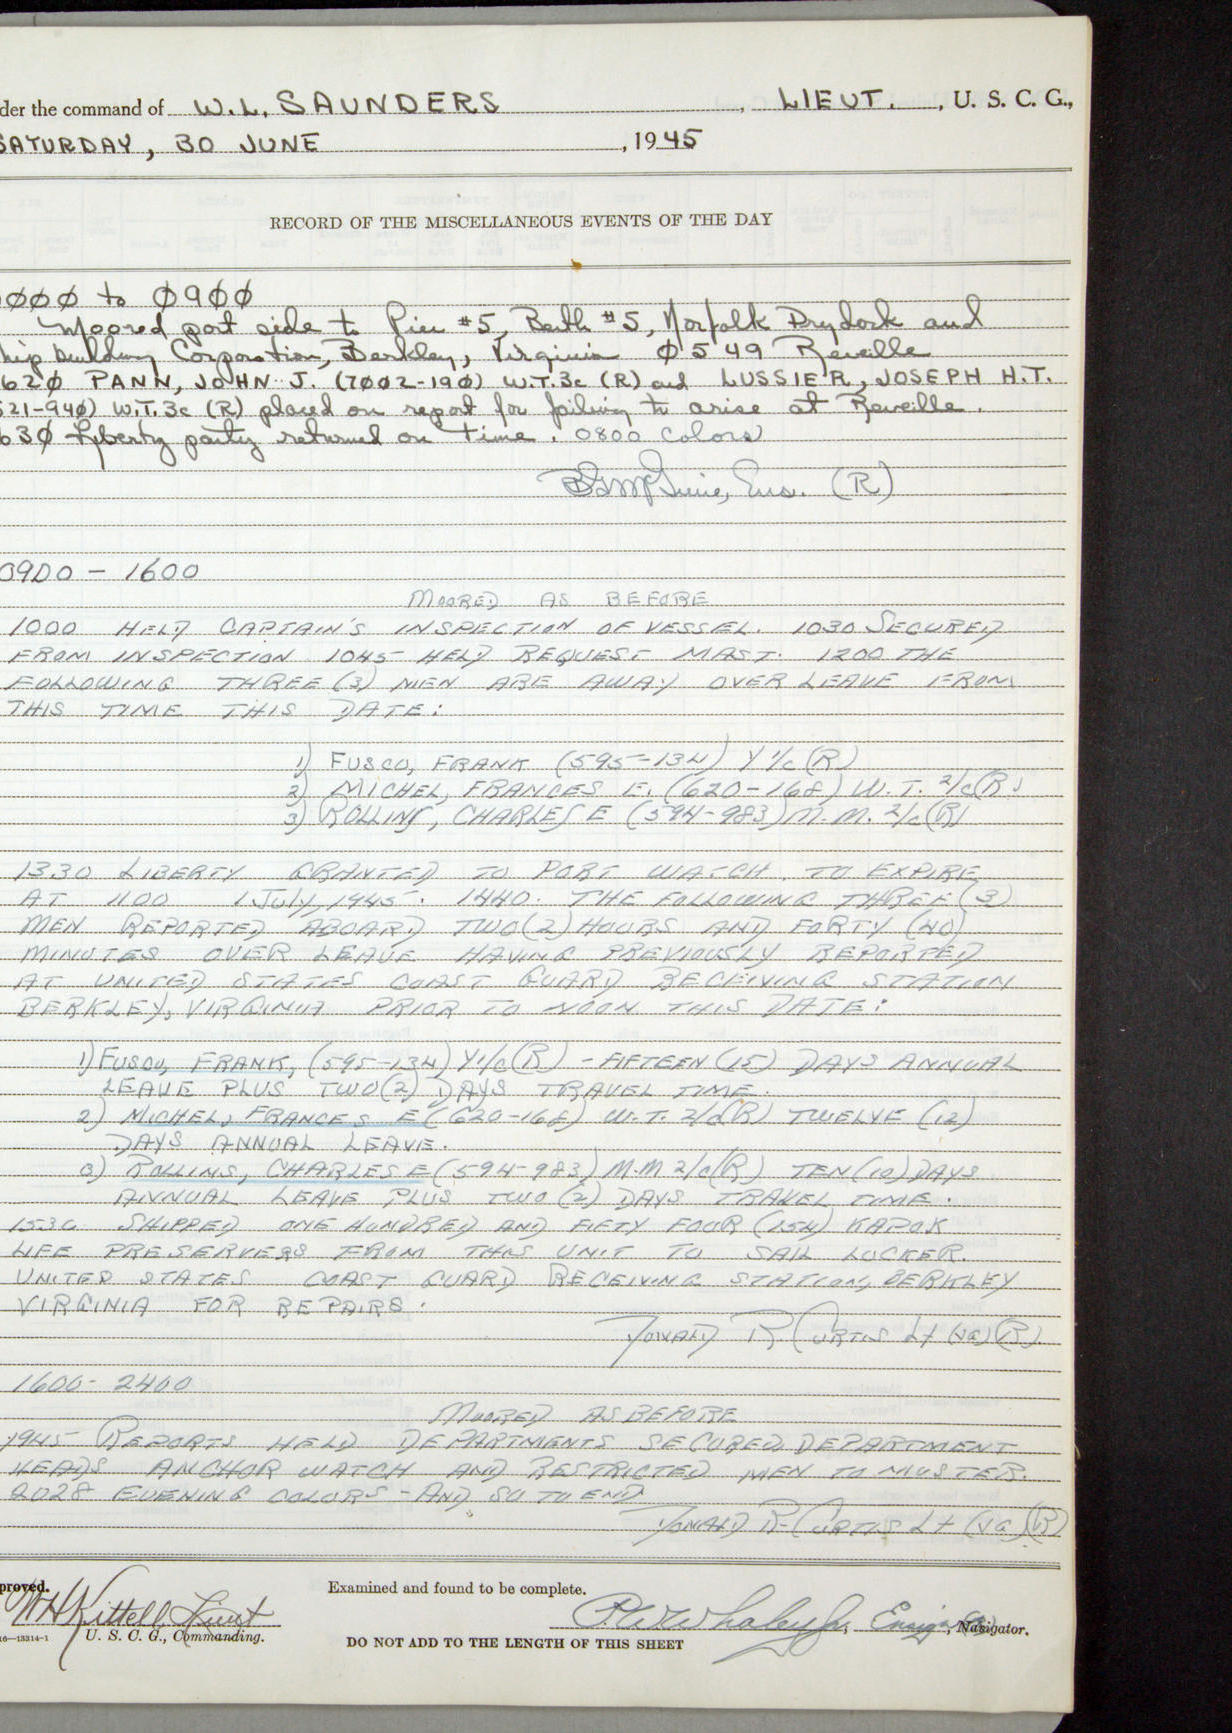 der the command of W. L. SAUNDERS, LIEUT., U. S. C. G.,
SATURDAY, 30 JUNE, 1945
RECORD OF THE MISCELLANEOUS EVENTS OF THE DAY
0ØØØ to Ø9ØØ
Moored port side to Pier #5, Berth #5, Norfolk Drydock and
hip building Corporation, Berkley, Virginia Ø549 Reveille
62Ø PANN, JOHN J. (7ØØ2-19Ø) W.T.3c (R) and LUSSIER, JOSEPH H.T.
521-94Ø) W.T.3c (R) placed on report for failing to arise at Reveille.
63Ø Liberty party returned on time. 0800 Colors
Ens. (R)
0900 - 1600
MOORED AS BEFORE
1000 HELD CAPTAIN'S INSPECTION OF VESSEL. 1030 SECURED
FROM INSPECTION 1045 HELD REQUEST MAST. 1200 THE
FOLLOWING THREE (3) MEN ARE AWAY OVER LEAVE FROM
THIS TIME THIS DATE:
1) FUSCO, FRANK (595-134) Y 1/c (R)
2) MICHEL, FRANCES E. (620-168) W.T. 2/c (R)
3) ROLLINS, CHARLES E (594-983) M.M. 2/c (R)
1330 LIBERTY GRANTED TO PORT WATCH. TO EXPIRE
AT 1100 1 July, 1945. 1440. THE FOLLOWING THREE (3)
MEN REPORTED ABOARD TWO (2) HOURS AND FORTY (40)
MINUTES OVER LEAVE HAVING PREVIOUSLY REPORTED
AT UNITED STATES COAST GUARD RECEIVING STATION
BERKLEY, VIRGINIA PRIOR TO NOON THIS DATE:
1) FUSCO, FRANK, (595-134) Y1/c (R) - FIFTEEN (15) DAYS ANNUAL
LEAVE PLUS TWO (2) DAYS TRAVEL TIME.
2) MICHEL, FRANCES E (620-168) W.T. 2/c (R) TWELVE (12)
DAYS ANNUAL LEAVE.
3) ROLLINS, CHARLES E (594-983) M.M 2/c (R) TEN (10) DAYS
ANNUAL LEAVE PLUS TWO (2) DAYS TRAVEL TIME.
1530 SHIPPED ONE HUNDRED AND FIFTY FOUR (154) KAPOK
LIFE PRESERVERS FROM THIS UNIT TO SAIL LOCKER.
UNITED STATES COAST GUARD RECEIVING STATION, BERKLEY
VIRGINIA FOR REPAIRS.
DONALD R. CURTIS Lt (JG) (R).
1600 - 2400
MOORED AS BEFORE
1945 REPORTS HELD DEPARTMENTS SECURED, DEPARTMENT
HEADS ANCHOR WATCH AND RESTRICTED MEN TO MUSTER.
2028 EVENING COLORS - AND SO TO END
DONALD R. CURTIS Lt (JG) (R)
proved.
W H Kittell, Lieut
U. S. C. G., Commanding.
16—13314-1
Examined and found to be complete.
P. W. Whaley Jr., Ensign (R), Navigator.
DO NOT ADD TO THE LENGTH OF THIS SHEET